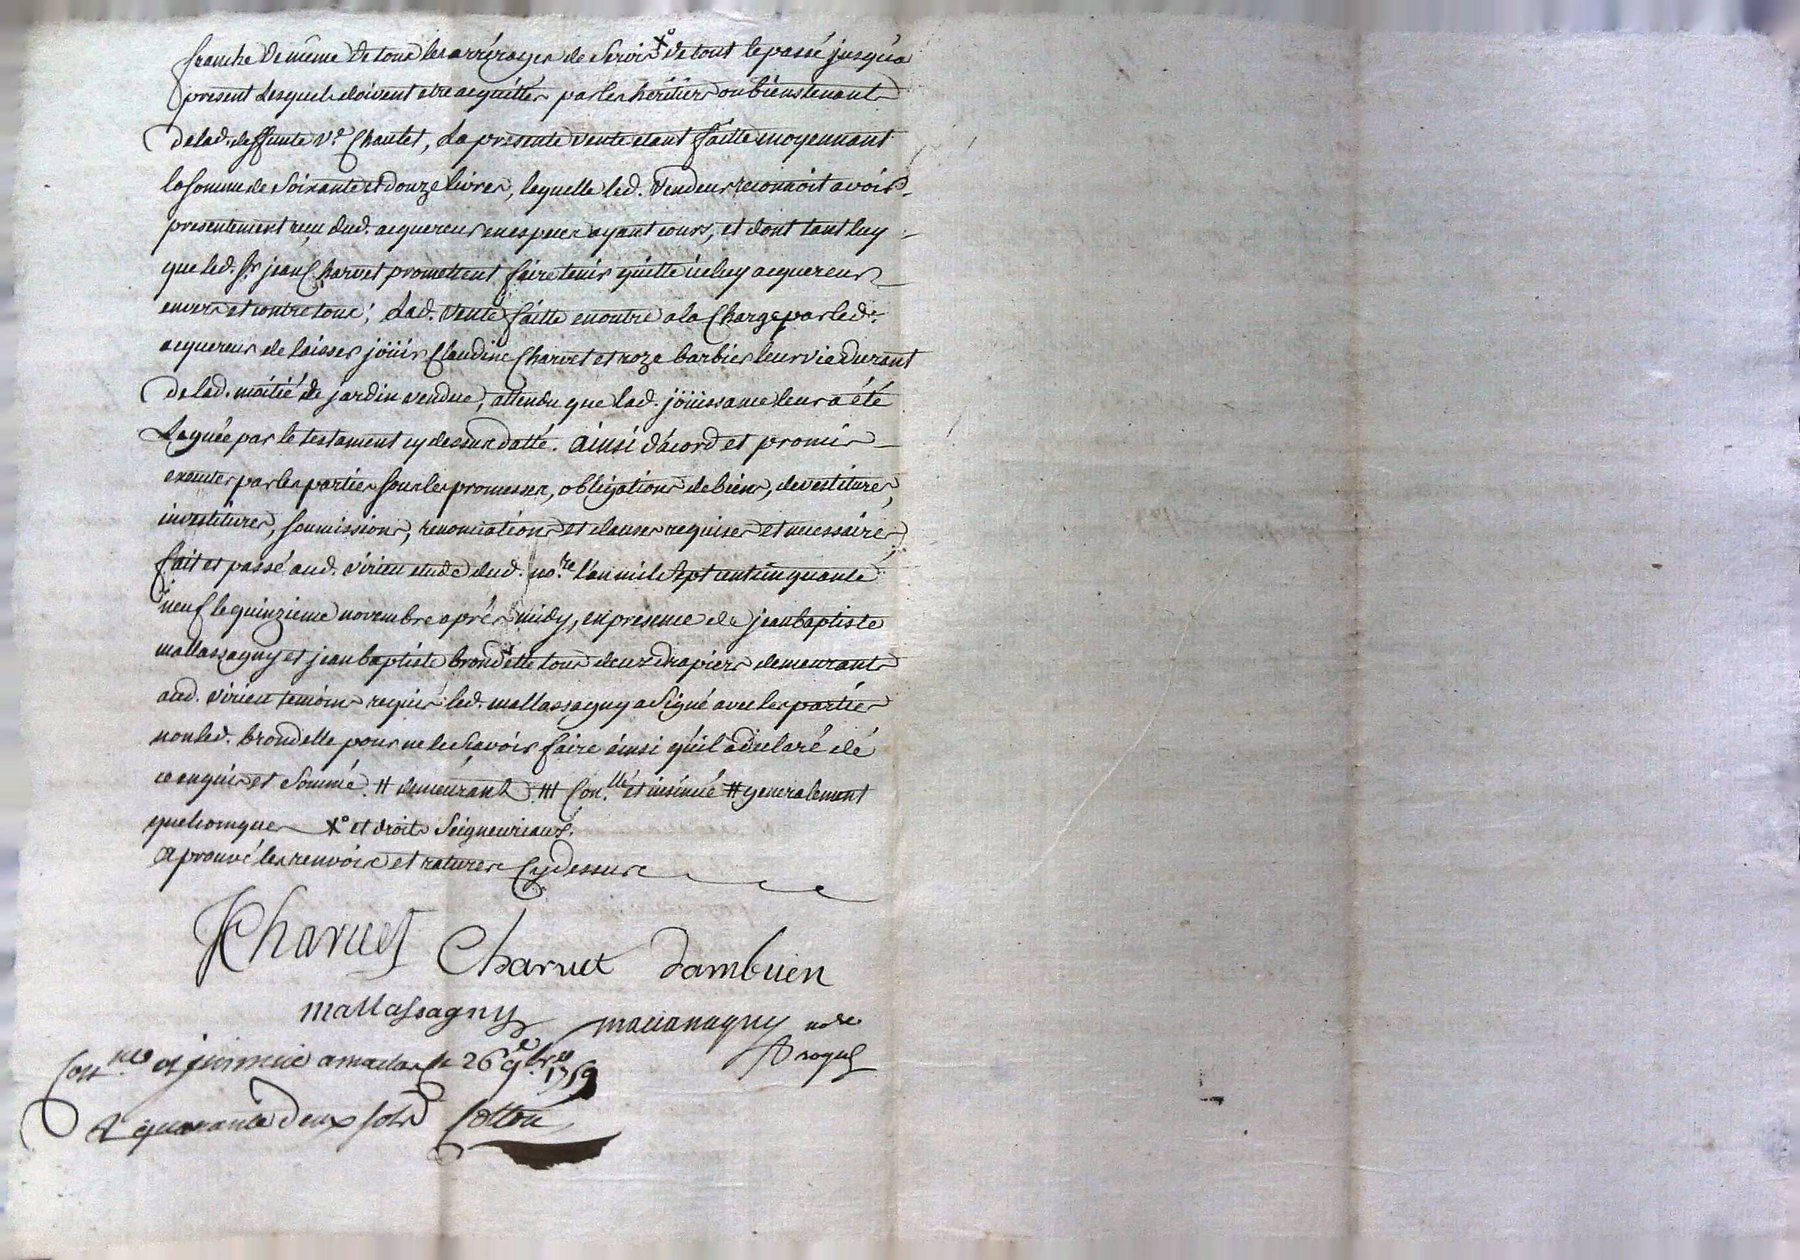 franche de même de tous les arrérages de servis X° de tout le passé jusqu'a
present lesquels doivent etre acquittés par les héritiers ou biens tenants
de lad. deffunte Ve. Chaulet, La presente vente etant faitte moyennant
la somme de soixante et douze livres, laquelle led. vendeur reconnoit avoir
presentement reçu dud. acquereur en especes ayant cours, et dont tant luy
que led. Sr. jean Charvet promettent faire tenir quitte iceluy acquereur
envers et contre tous; Lad. vente faitte en outre a la Charge par led.
acquereur de laisser joüir Claudine Charvet et roze barbier leur vie durant
de lad. moitié de jardin vendue, attendu que lad. joüissance leur a été
Leguée par le testament cy dessus datté. ainsi d'acord et promis
executer par les parties sous les promesses, obligations de biens, devestitures,
investitures, soumissions, renonciations et clauses requises et necessaires,
fait et passé aud. virieu etude dud. no.re l'an mil sept cent cinquante
neuf le quinzieme novembre aprés midy, en presence de jean baptiste
mallassagny et jean baptiste brondelle tous deux drapiers demeurants
aud. virieu temoins requis led. mallassagny a signé avec les parties
non led. brondelle pour ne le sçavoir faire ainsi qu'il a declaré de
ce enquis et sommé. # demeurant # Con.llé et insinué # generalement
quelconques X° et droits seigneuriaux.
aprouvé les renvois et ratures Cy dessus
JCharvet Charvet Dambuen
mallassagny mallassagny nore
Con.llé et insinué a le 26e 9bre 1759
R quarante deux sols Cottou